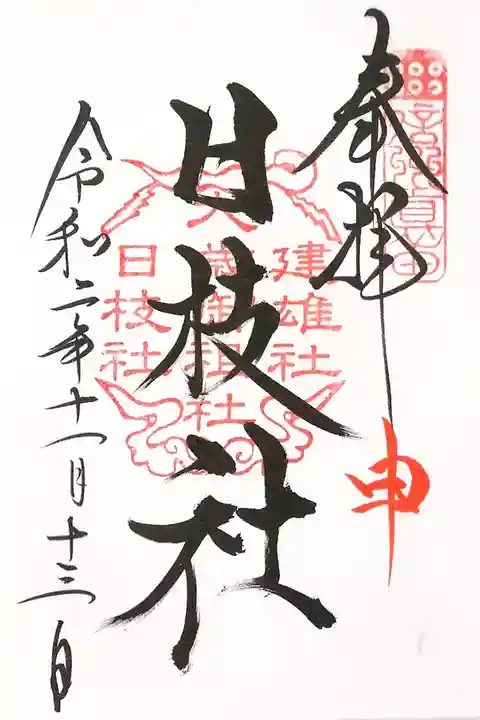 奉拝
申
建雄社
歳御祖社
日枝社
日枝社
令和二年十一月十三日